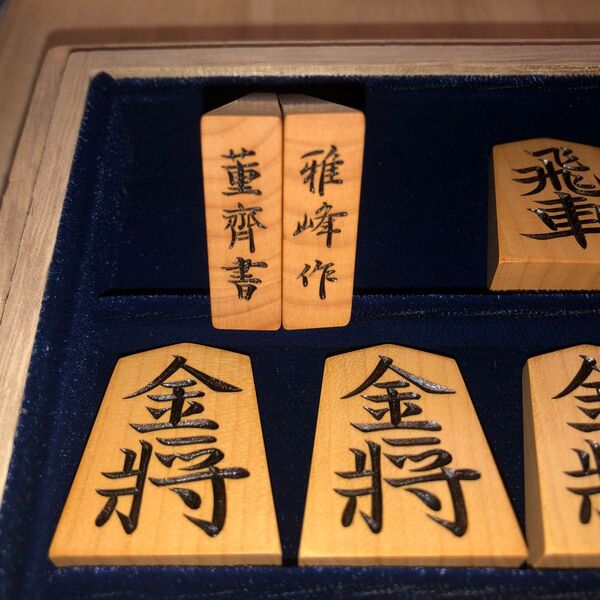 雅峰作
董齊書
飛車
金將
金將
金將